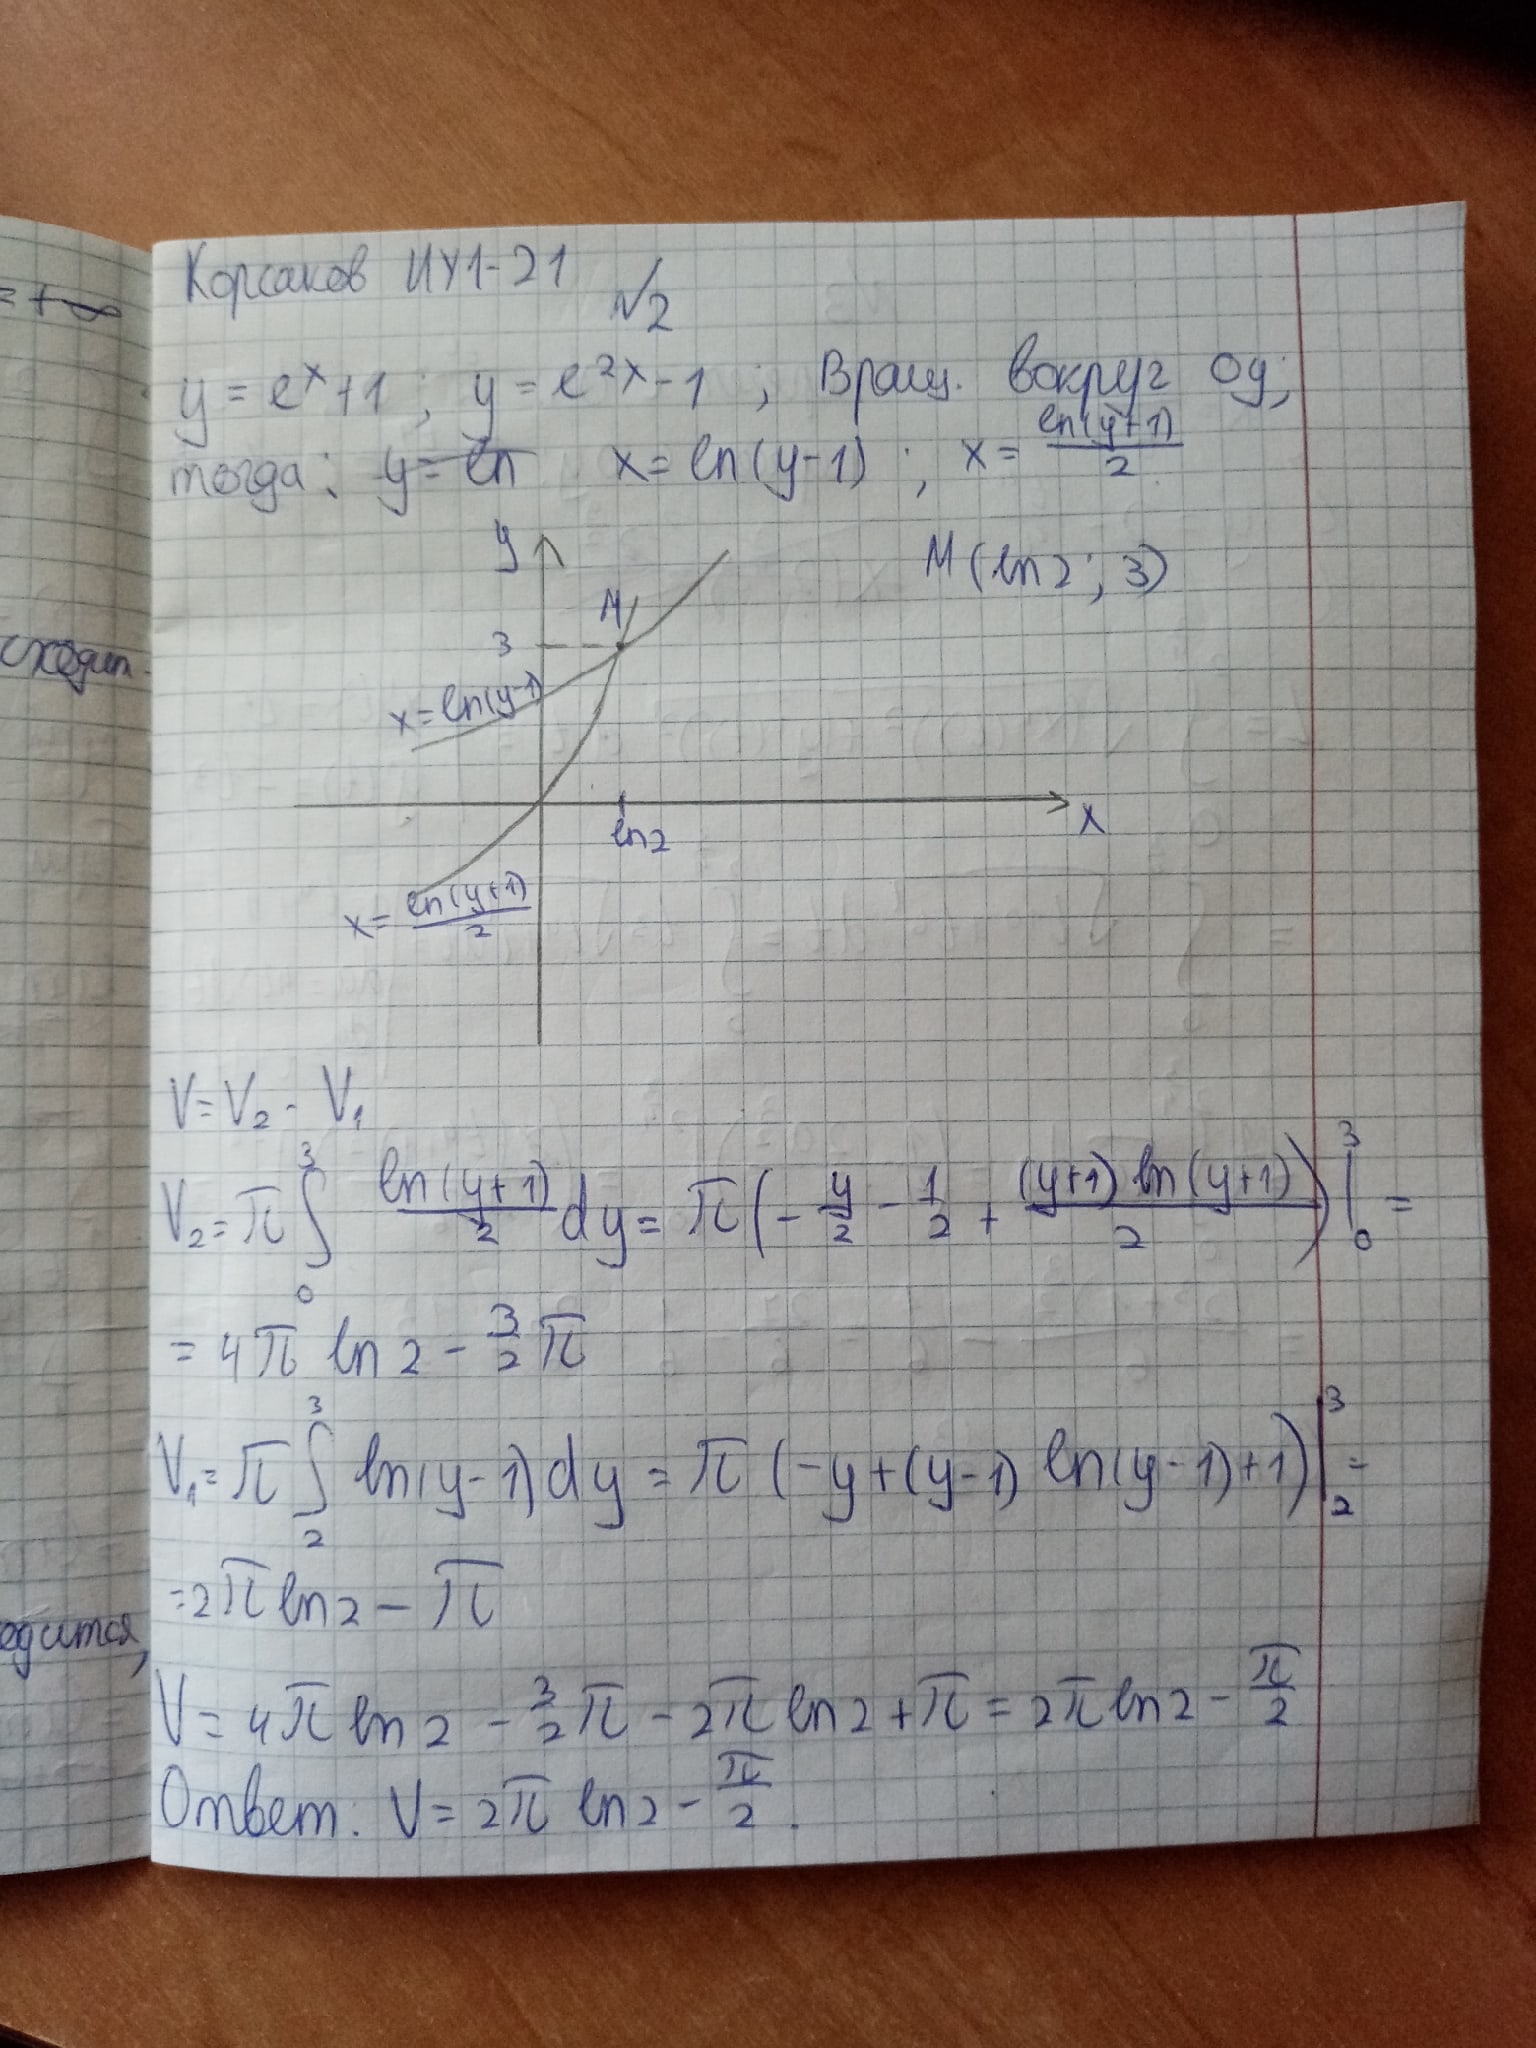 = + ∞
сходит
одится,
Корсаков ИУ1-21
№2
y = eˣ + 1 ; y = e²ˣ - 1 ; Вращ. вокруг Oy;
тогда: y = ln x = ln(y-1) ; x = ln(y+1)/2
y
M (ln2 ; 3)
M
3
x = ln(y-1)
x
ln2
x = ln(y+1)/2
V = V₂ - V₁
V₂ = π ∫₀³ ln(y+1)/2 dy = π(- y/2 - 1/2 + (y+1) ln(y+1)/2)|₀³ =
= 4π ln2 - 3/2 π
V₁ = π ∫₂³ ln(y-1) dy = π (-y + (y-1) ln(y-1) + 1)|₂³ =
= 2π ln2 - π
V = 4π ln2 - 3/2 π - 2π ln2 + π = 2π ln2 - π/2
Ответ: V = 2π ln2 - π/2 .